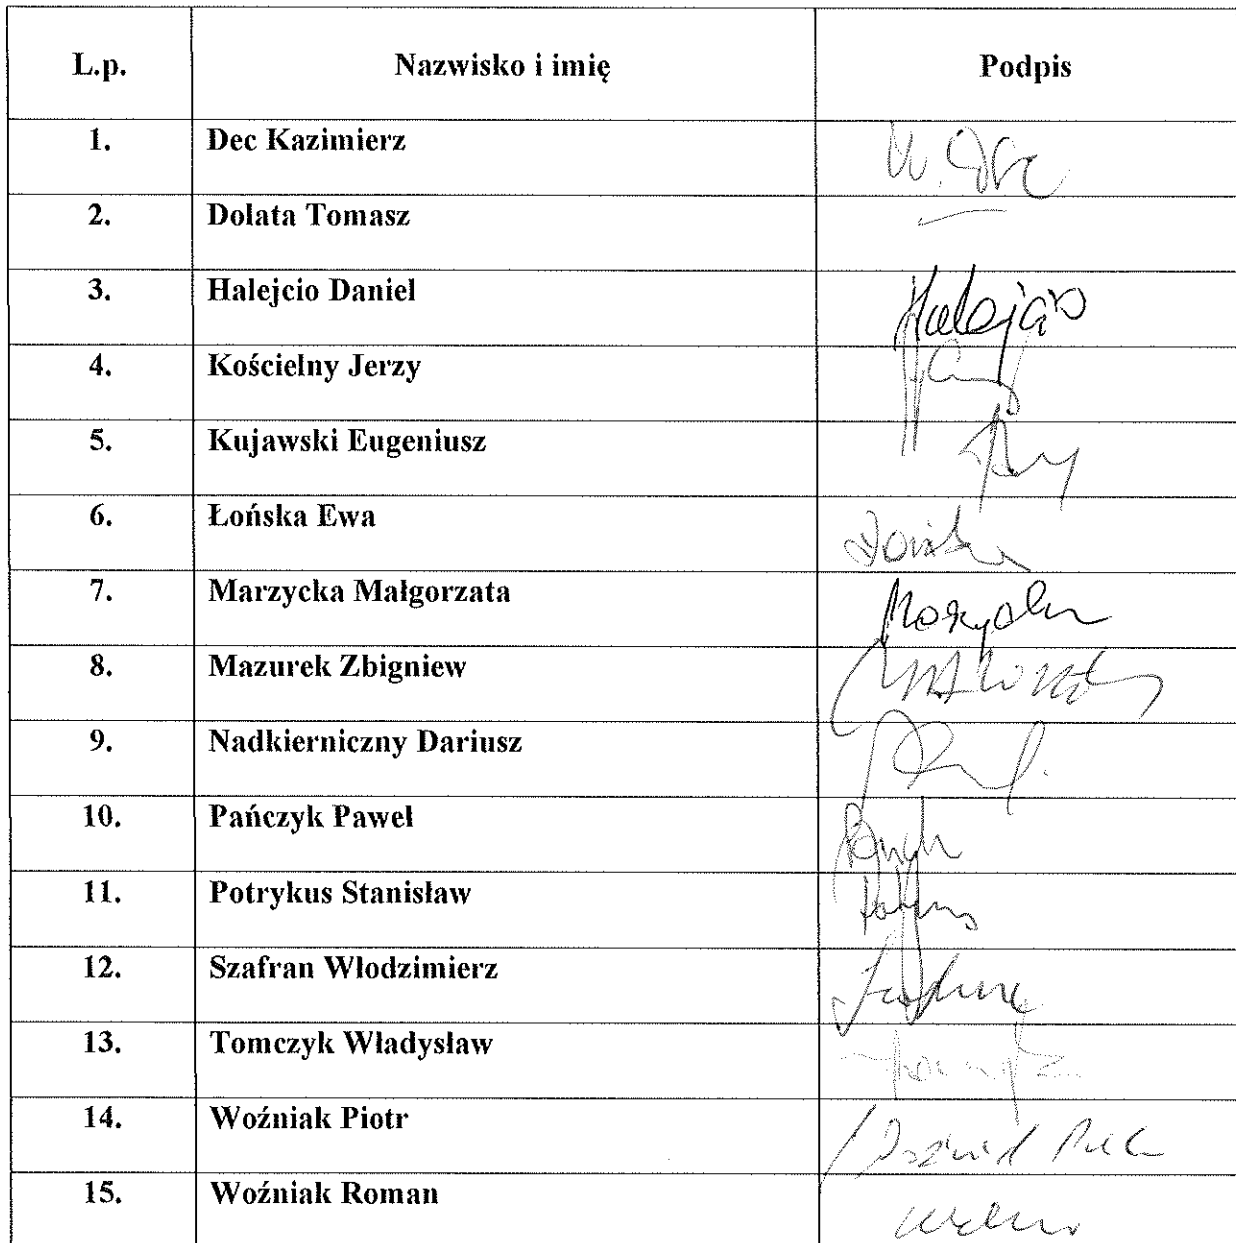 L.p. Nazwisko i imię Podpis
1. Dec Kazimierz
2. Dolata Tomasz
3. Halejcio Daniel Halejcio
4. Kościelny Jerzy
5. Kujawski Eugeniusz
6. Łońska Ewa Łońska
7. Marzycka Małgorzata
8. Mazurek Zbigniew
9. Nadkierniczny Dariusz
10. Pańczyk Paweł
11. Potrykus Stanisław
12. Szafran Włodzimierz
13. Tomczyk Władysław
14. Woźniak Piotr
15. Woźniak Roman